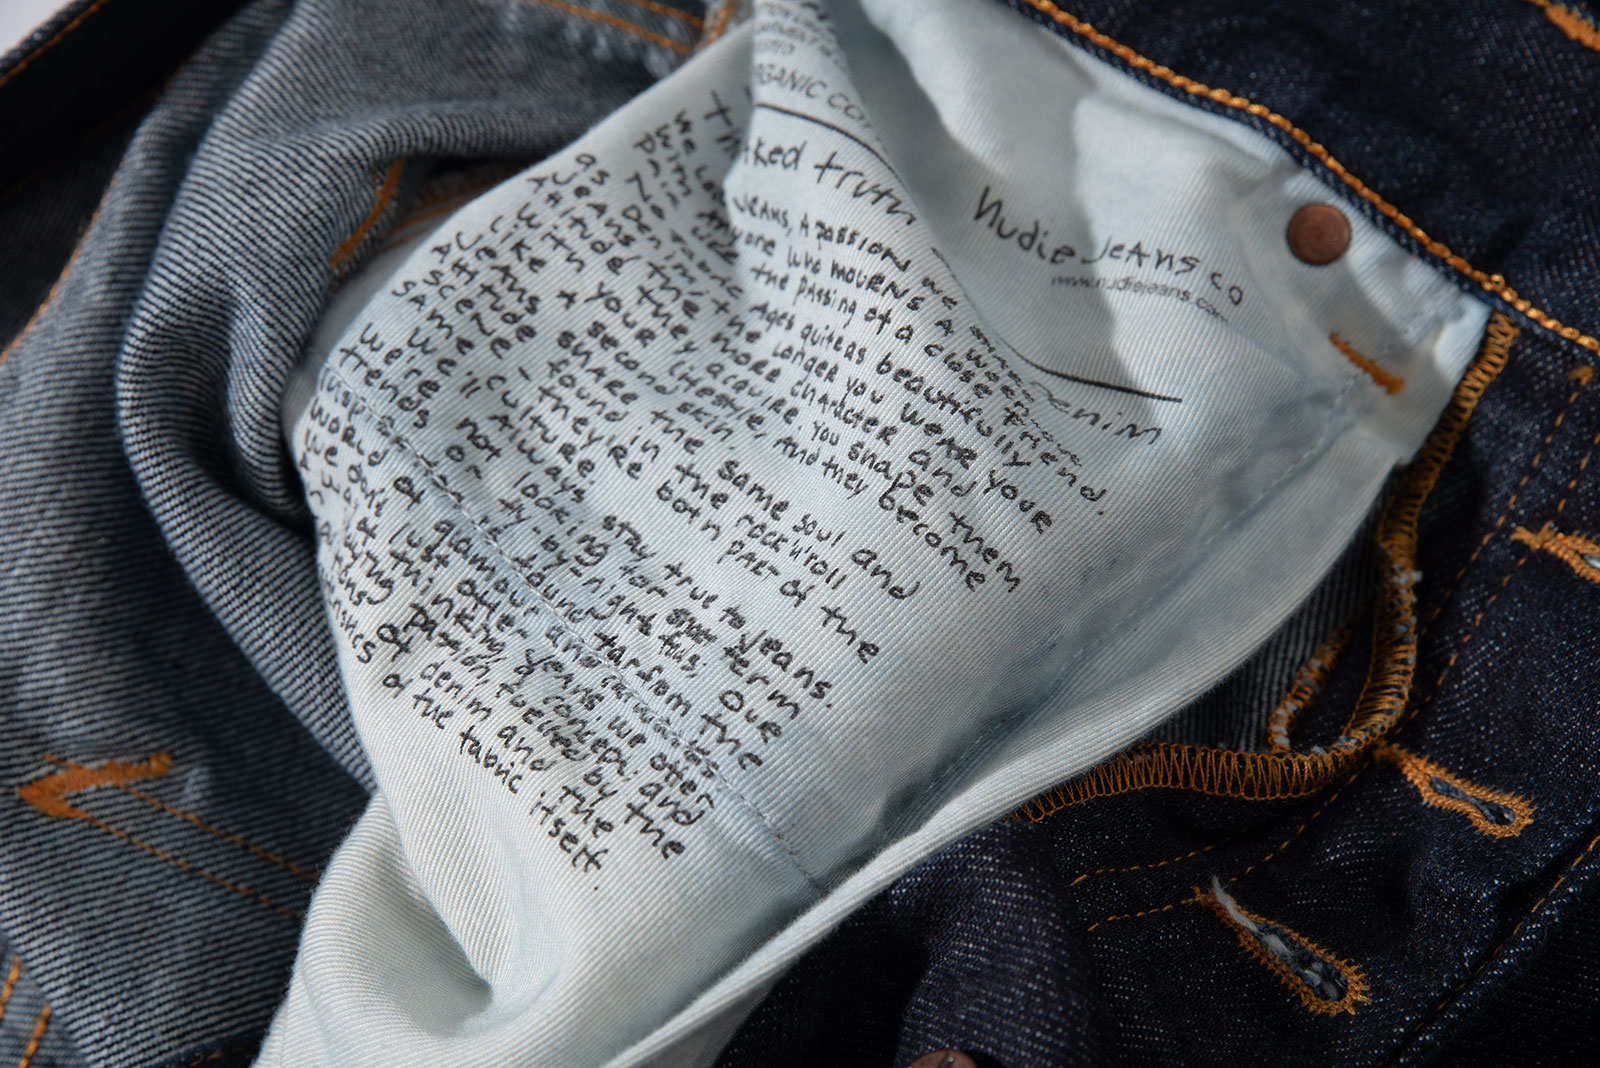 ORGANIC CO
th ked truth denim
we lo JEANS, A passion we
with anyone who mourns a worn
pair the passing of a close friend.
No fabric Ages quite as beautifully
as denim, the longer you wear your
jeans the more character and
attitude they acquire. You shape them
your lifestyle, and they become
like a second skin
jeans share the same soul and
attitude found in the rock'n'roll
scene / they're born part of the
same culture
we'll Always stay true to jeans.
we're not looking for term
trends or nights thus, our
found far from the
world of glamour and
we don't just offer jeans. we offer
way of thinking, a concept and
passion fuelled by the
of denim and the
of the fabric itself.
Nudie Jeans co
www.nudiejeans.com